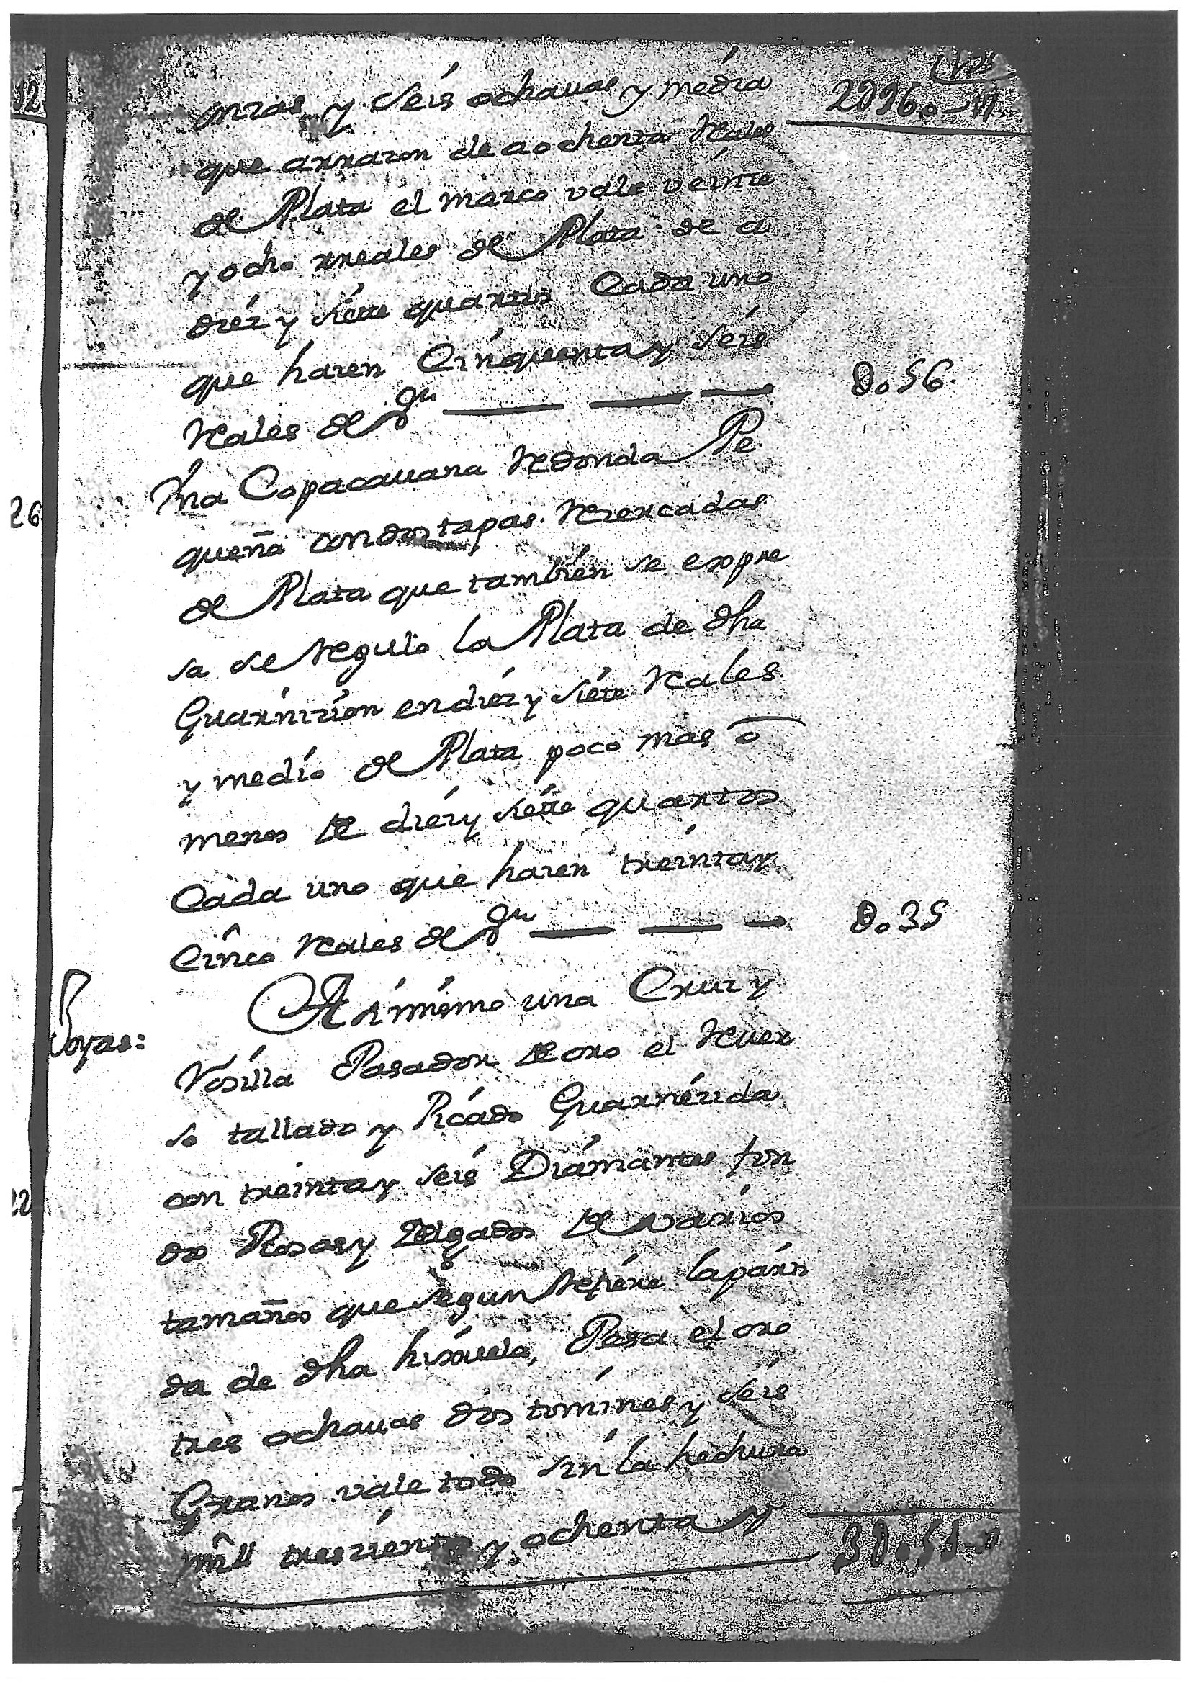 onzas, y seis ochauas y media
que a rrazon de a ochenta Reales
de Plata el marco vale veinte
y ocho rreales de Plata de a
diez y siete quartos Cada uno
que hazen Cinquenta y seis
Reales de Vn 0o.56.
Vna Copacauana Redonda Pe
queña con dos tapas. Zercadas
de Plata que también se expre
sa se Regulo la Plata de dha
Guarnizion en diez y siete Reales
y medio de Plata poco mas ō
menos de diez y siete quartos
Cada uno que hazen treinta y
Cinco Reales de Vn 0o.35
Joyas: Asimismo una Cruz y
Vosilla Pasador de oro el Huer
so tallado y Picado Guarnezida
con treinta y seis Diamantes fon
dos Rosas y Delgados de varios
tamaños que segun Refiere la parti
da de dha hijuela, Pesa el oro
tres ochauas dos tomines y seis
Granos. vale todo sin la hechura
mīll trezientos y ochenta y